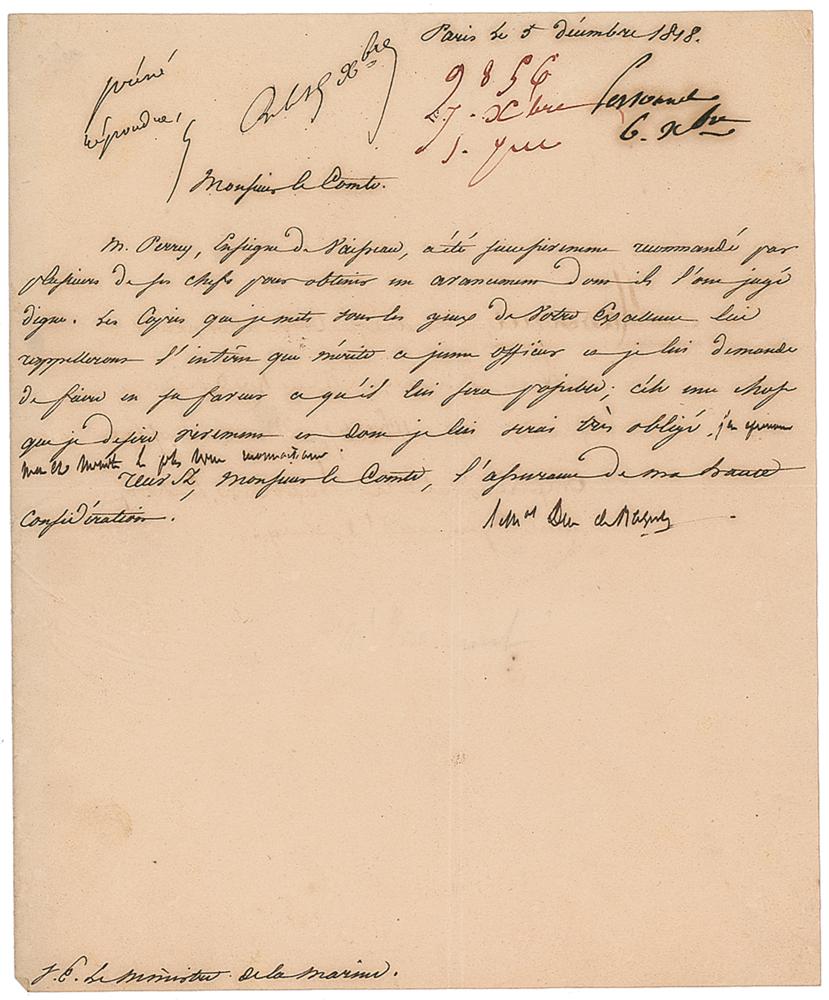 Paris le 5 décembre 1818.
répondre,
Xbre
9856
7. Xbre
Personnel
6. Xbre
Monsieur le Comte.
M. Perrey, Enseigne de Vaisseau, a été successivement recommandé par
plusieurs de ses chefs pour obtenir un avancement dont ils l'ont jugé
digne. Les Copies que je mets sous les yeux de Votre Excellence lui
rappelleront l'intérêt que mérite ce jeune officier et je lui demande
de faire en sa faveur ce qu'il lui sera possible; c'est une chose
que je desire vivement et dont je lui serai très obligé,
Monsieur le Comte, l'assurance de ma haute
considération.
Duc de
S. E. Le Ministre de la Marine.